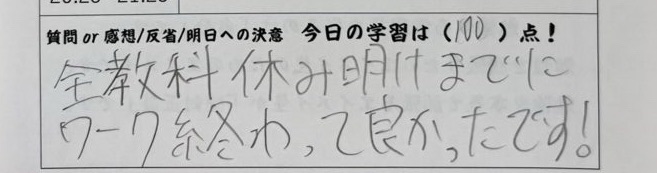 質問 or 感想/反省/明日への決意 今日の学習は（100）点！
全教科 休み明けまでに
ワーク終わって良かったです!